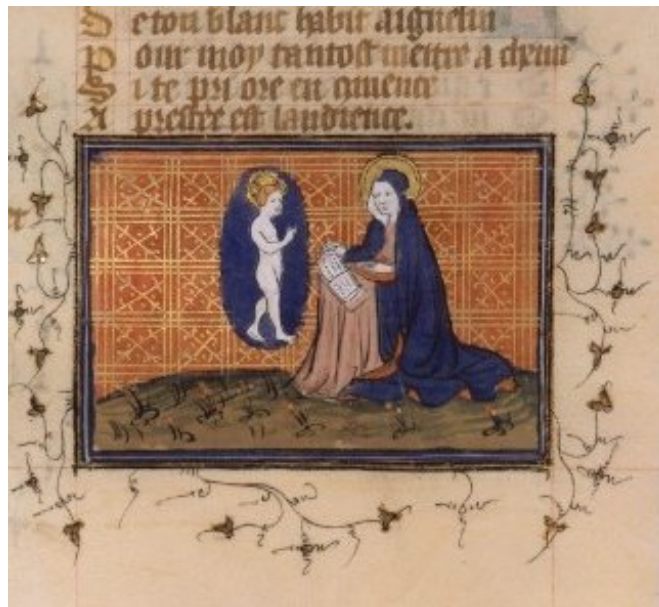 S e ton blanc habit aignelin
P our moy tantost mettre a
S i te pri ore en
A prestee est laudience.